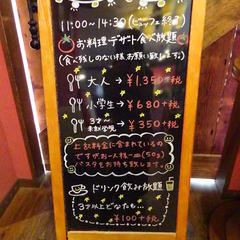 11:00~14:30(ビュッフェ終了)
お料理・デザート食べ放題
(食べ残しのない様お願い致します。)
大人→¥1,350+税
小学生→¥680+税
3才~未就学児→¥350+税
上記料金に含まれているの
ですがお一人様一皿(50g)
パスタをお持ち致します。
ドリンク飲み放題
3才以上どなたも…
¥100+税